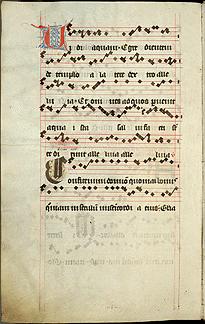 Vi di aquam Egre dientem
de templo a la tere dex tro alle
lu ia Et om nes ad quos pervenit
aqua i sta sal vi fa cti
et di cent alle luia alle luia
Confitemini domino quoniam bonus
quoniam in seculum misericordi a eius Glia